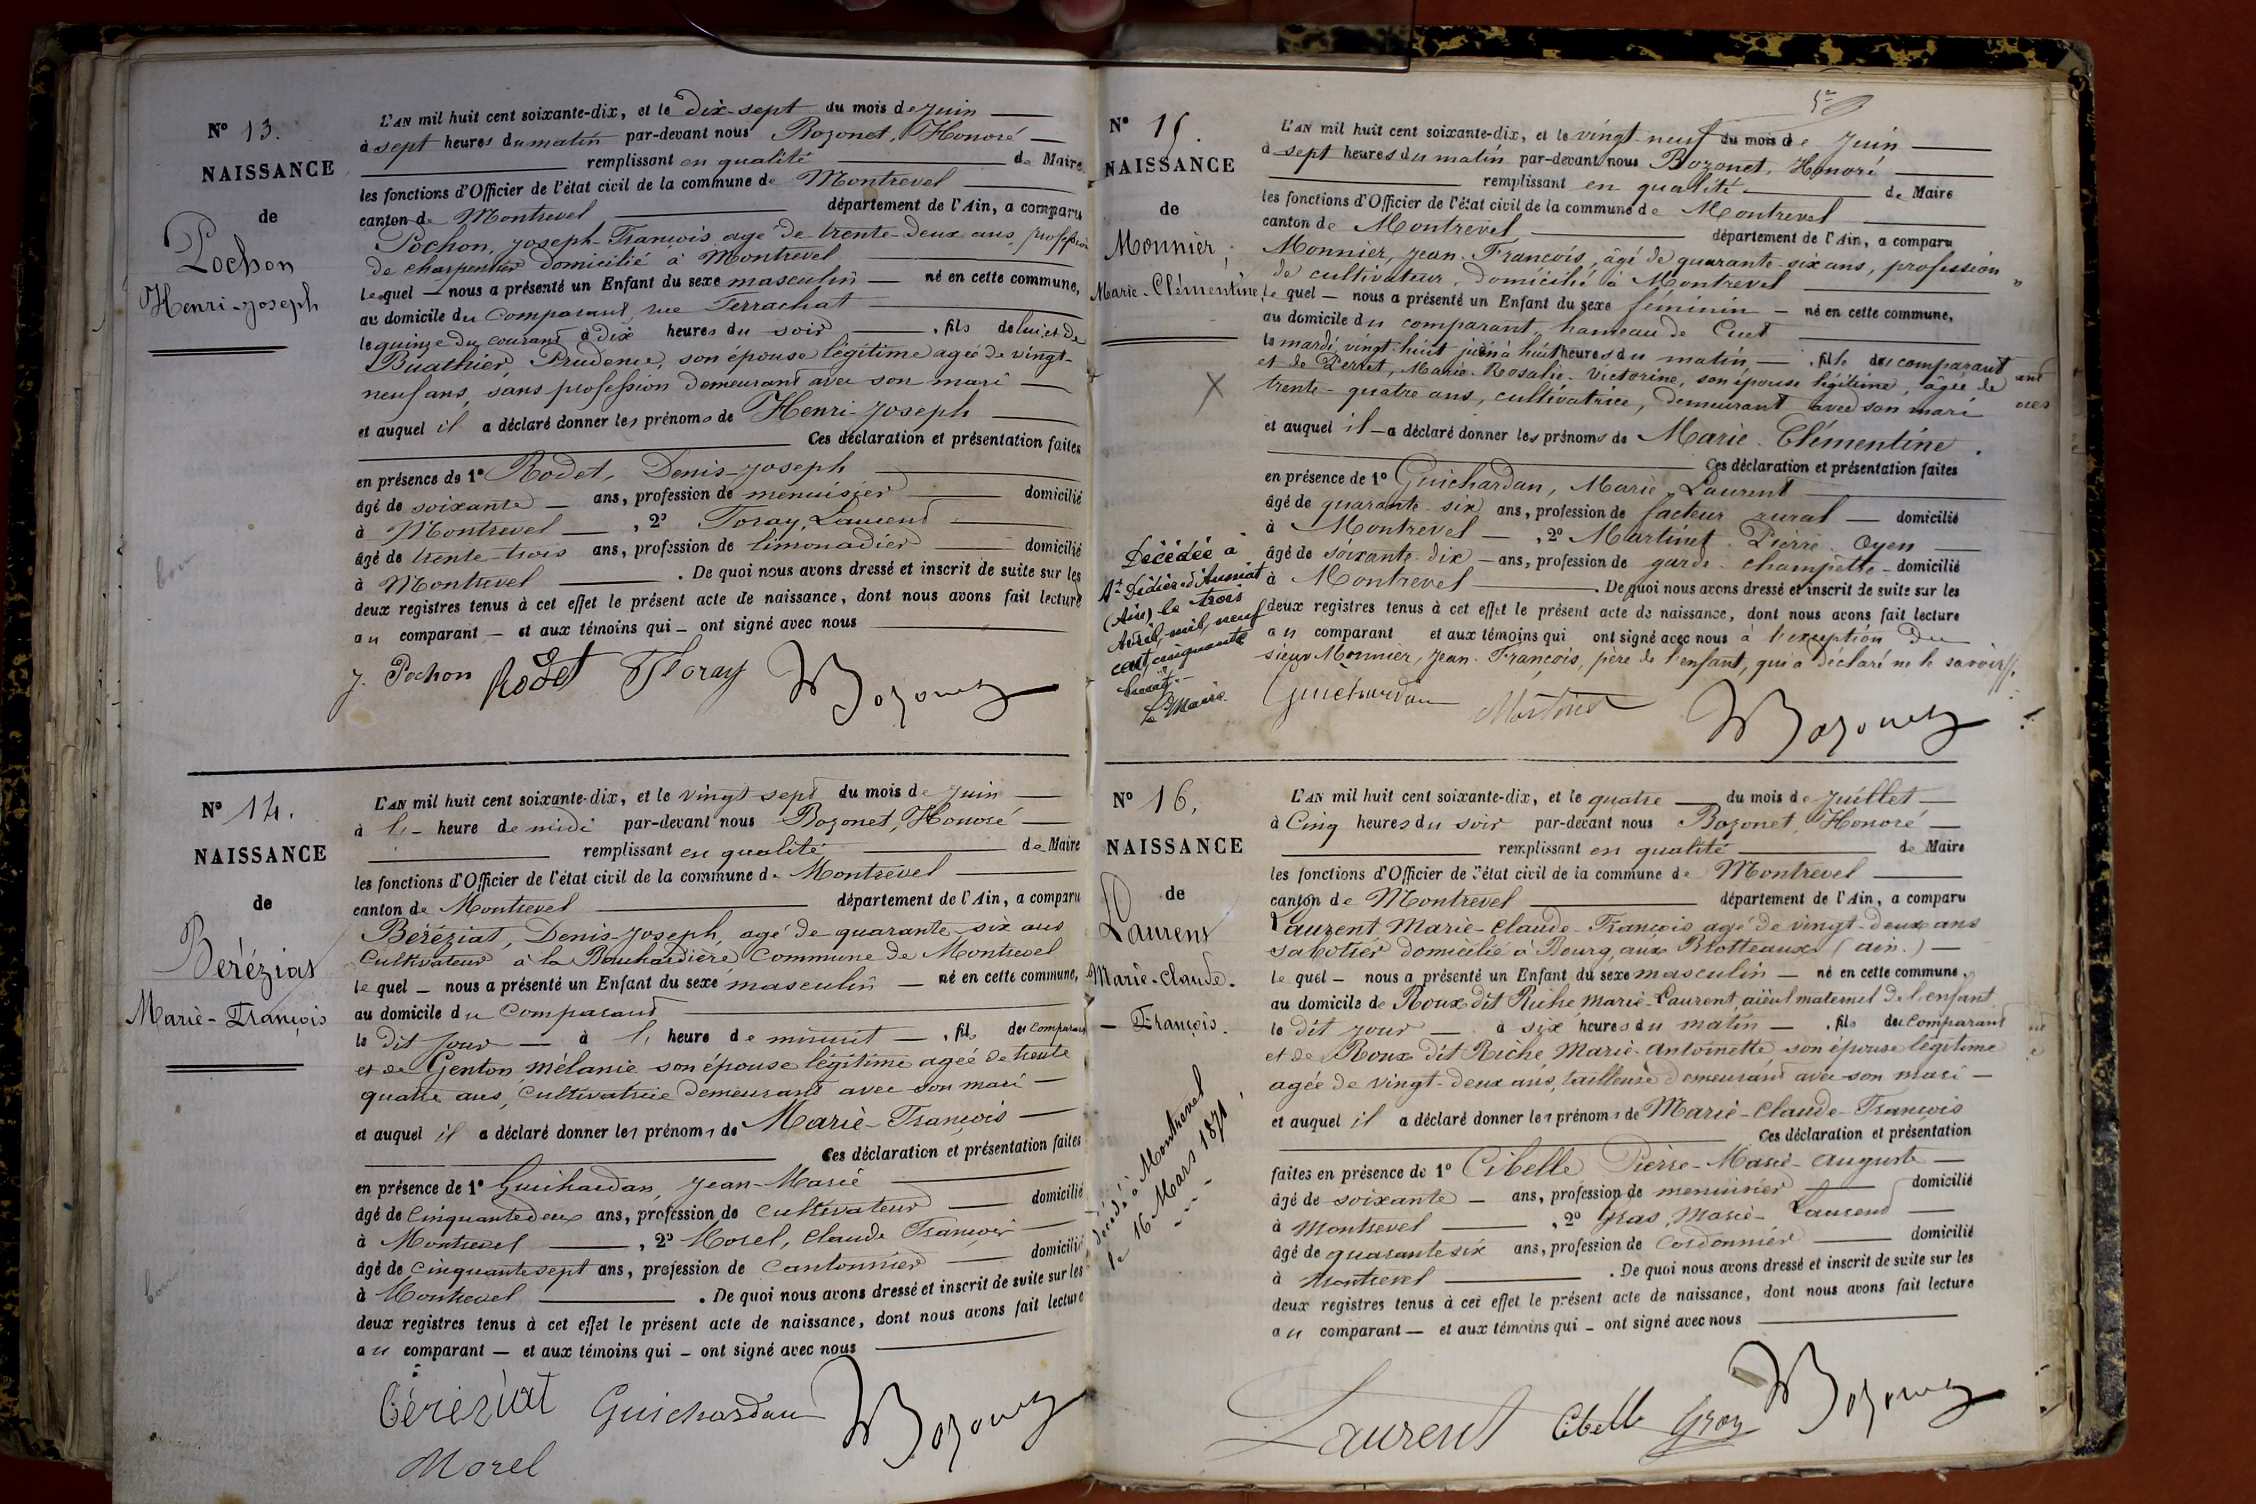 N° 13.
NAISSANCE
de
Pochon
Henri-Joseph
L'AN mil huit cent soixante-dix, et le dix-sept du mois de juin
à sept heures du matin par-devant nous Bozonet, Honoré
remplissant en qualité de Maire
les fonctions d'Officier de l'état civil de la commune de Montrevel
canton de Montrevel département de l'Ain, a comparu
Pochon, Joseph-François, agé de trente-deux ans, profession
de charpentier domicilié à Montrevel
lequel — nous a présenté un Enfant du sexe masculin — né en cette commune,
au domicile du Comparant, rue Terrachat
le quinze du courant à dix heures du soir , fils de lui et de
Buathier Prudence, son épouse légitime agée de vingt-
neuf ans, sans profession demeurant avec son mari —
et auquel il a déclaré donner les prénoms de Henri-Joseph
Ces déclaration et présentation faites
en présence de 1° Rodet, Denis-Joseph
âgé de soixante — ans, profession de menuisier domicilié
à Montrevel — , 2° Foray, Laurent
âgé de trente-trois ans, profession de limonadier domicilié
à Montrevel . De quoi nous avons dressé et inscrit de suite sur les
deux registres tenus à cet effet le présent acte de naissance, dont nous avons fait lecture
au comparant — et aux témoins qui — ont signé avec nous
J. Pochon Rodet Foray Bozonet
N° 14.
NAISSANCE
de
Beréziat
Marie-François
L'AN mil huit cent soixante-dix, et le vingt sept du mois de juin
à 1 — heure de midi par-devant nous Bozonet, Honoré
remplissant en qualité de Maire
les fonctions d'Officier de l'état civil de la commune de Montrevel
canton de Montrevel département de l'Ain, a comparu
Béréziat, Denis-Joseph, agé de quarante-six ans
Cultivateur à la Bouchardière Commune de Montrevel
lequel — nous a présenté un Enfant du sexe masculin — né en cette commune,
au domicile du Comparant
le dit jour — à 1 heure de minuit — , fils du comparant
et de Genton Mélanie son épouse légitime agée de trente
quatre ans, Cultivatrice demeurant avec son mari —
et auquel il a déclaré donner les prénoms de Marie-François
Ces déclaration et présentation faites
en présence de 1° Guichardan, Jean-Marie
âgé de Cinquante deux ans, profession de Cultivateur domicilié
à Montrevel , 2° Morel, Claude François
âgé de Cinquante sept ans, profession de Cantonnier domicilié
à Montrevel . De quoi nous avons dressé et inscrit de suite sur les
deux registres tenus à cet effet le présent acte de naissance, dont nous avons fait lecture
au comparant — et aux témoins qui — ont signé avec nous
Béréziat Guichardan Bozonet
Morel
N° 15.
NAISSANCE
de
Monnier,
Marie-Clémentine
Décédée à
St Didier d'Aussiat
(Ain) le trois
Avril mil neuf
cent cinquante
huit.—
Le Maire
L'AN mil huit cent soixante-dix, et le vingt-neuf du mois de Juin
à sept heures du matin par-devant nous Bozonet, Honoré
remplissant en qualité de Maire
les fonctions d'Officier de l'état civil de la commune de Montrevel
canton de Montrevel département de l'Ain, a comparu
Monnier, Jean-François, âgé de quarante-six ans, profession
de cultivateur, domicilié à Montrevel
lequel — nous a présenté un Enfant du sexe féminin — né en cette commune,
au domicile du comparant, hameau de Cuet
le mardi, vingt-huit juin à huit heures du matin — , fille du comparant
et de Perret, Marie-Rosalie-Victorine, son épouse légitime, âgée de
trente-quatre ans, cultivatrice, demeurant avec son mari
et auquel il — a déclaré donner les prénoms de Marie-Clémentine.
Ces déclaration et présentation faites
en présence de 1° Guichardan, Marie-Laurent
âgé de quarante-six ans, profession de facteur rural — domicilié
à Montrevel — , 2° Martinet Pierre Oyen
âgé de soixante-dix — ans, profession de garde-champêtre — domicilié
à Montrevel . De quoi nous avons dressé et inscrit de suite sur les
deux registres tenus à cet effet le présent acte de naissance, dont nous avons fait lecture
au comparant et aux témoins qui ont signé avec nous à l'exception du
sieur Monnier, Jean-François, père de l'enfant, qui a déclaré ne le savoir
Guichardan Martinet Bozonet
N° 16.
NAISSANCE
de
Laurent
Marie-Claude.
— François.
décédé à Montrevel
le 16 Mars 1871.
L'AN mil huit cent soixante-dix, et le quatre du mois de juillet
à Cinq heures du soir par-devant nous Bozonet, Honoré
remplissant en qualité de Maire
les fonctions d'Officier de l'état civil de la commune de Montrevel
canton de Montrevel département de l'Ain, a comparu
Laurent Marie-Claude-François agé de vingt-deux ans
sabotier domicilié à Bourg, aux Blotteaux (ain.) —
lequel — nous a présenté un Enfant du sexe masculin — né en cette commune,
au domicile de Roux dit Riche Marie-Laurent, aïeul maternel de l'enfant
le dit jour — à six heures du matin — , fils du Comparant
et de Roux dit Riche Marie-Antoinette son épouse légitime
agée de vingt-deux ans, tailleuse demeurant avec son mari —
et auquel il a déclaré donner les prénoms de Marie-Claude-François
Ces déclaration et présentation
faites en présence de 1° Cibelle Pierre-Marie-Auguste —
âgé de soixante — ans, profession de menuisier domicilié
à Montrevel , 2° Gras, Marie-Laurent
âgé de quarante six ans, profession de Cordonnier domicilié
à Montrevel . De quoi nous avons dressé et inscrit de suite sur les
deux registres tenus à cet effet le présent acte de naissance, dont nous avons fait lecture
au comparant — et aux témoins qui — ont signé avec nous
Laurent Cibelle Gras Bozonet